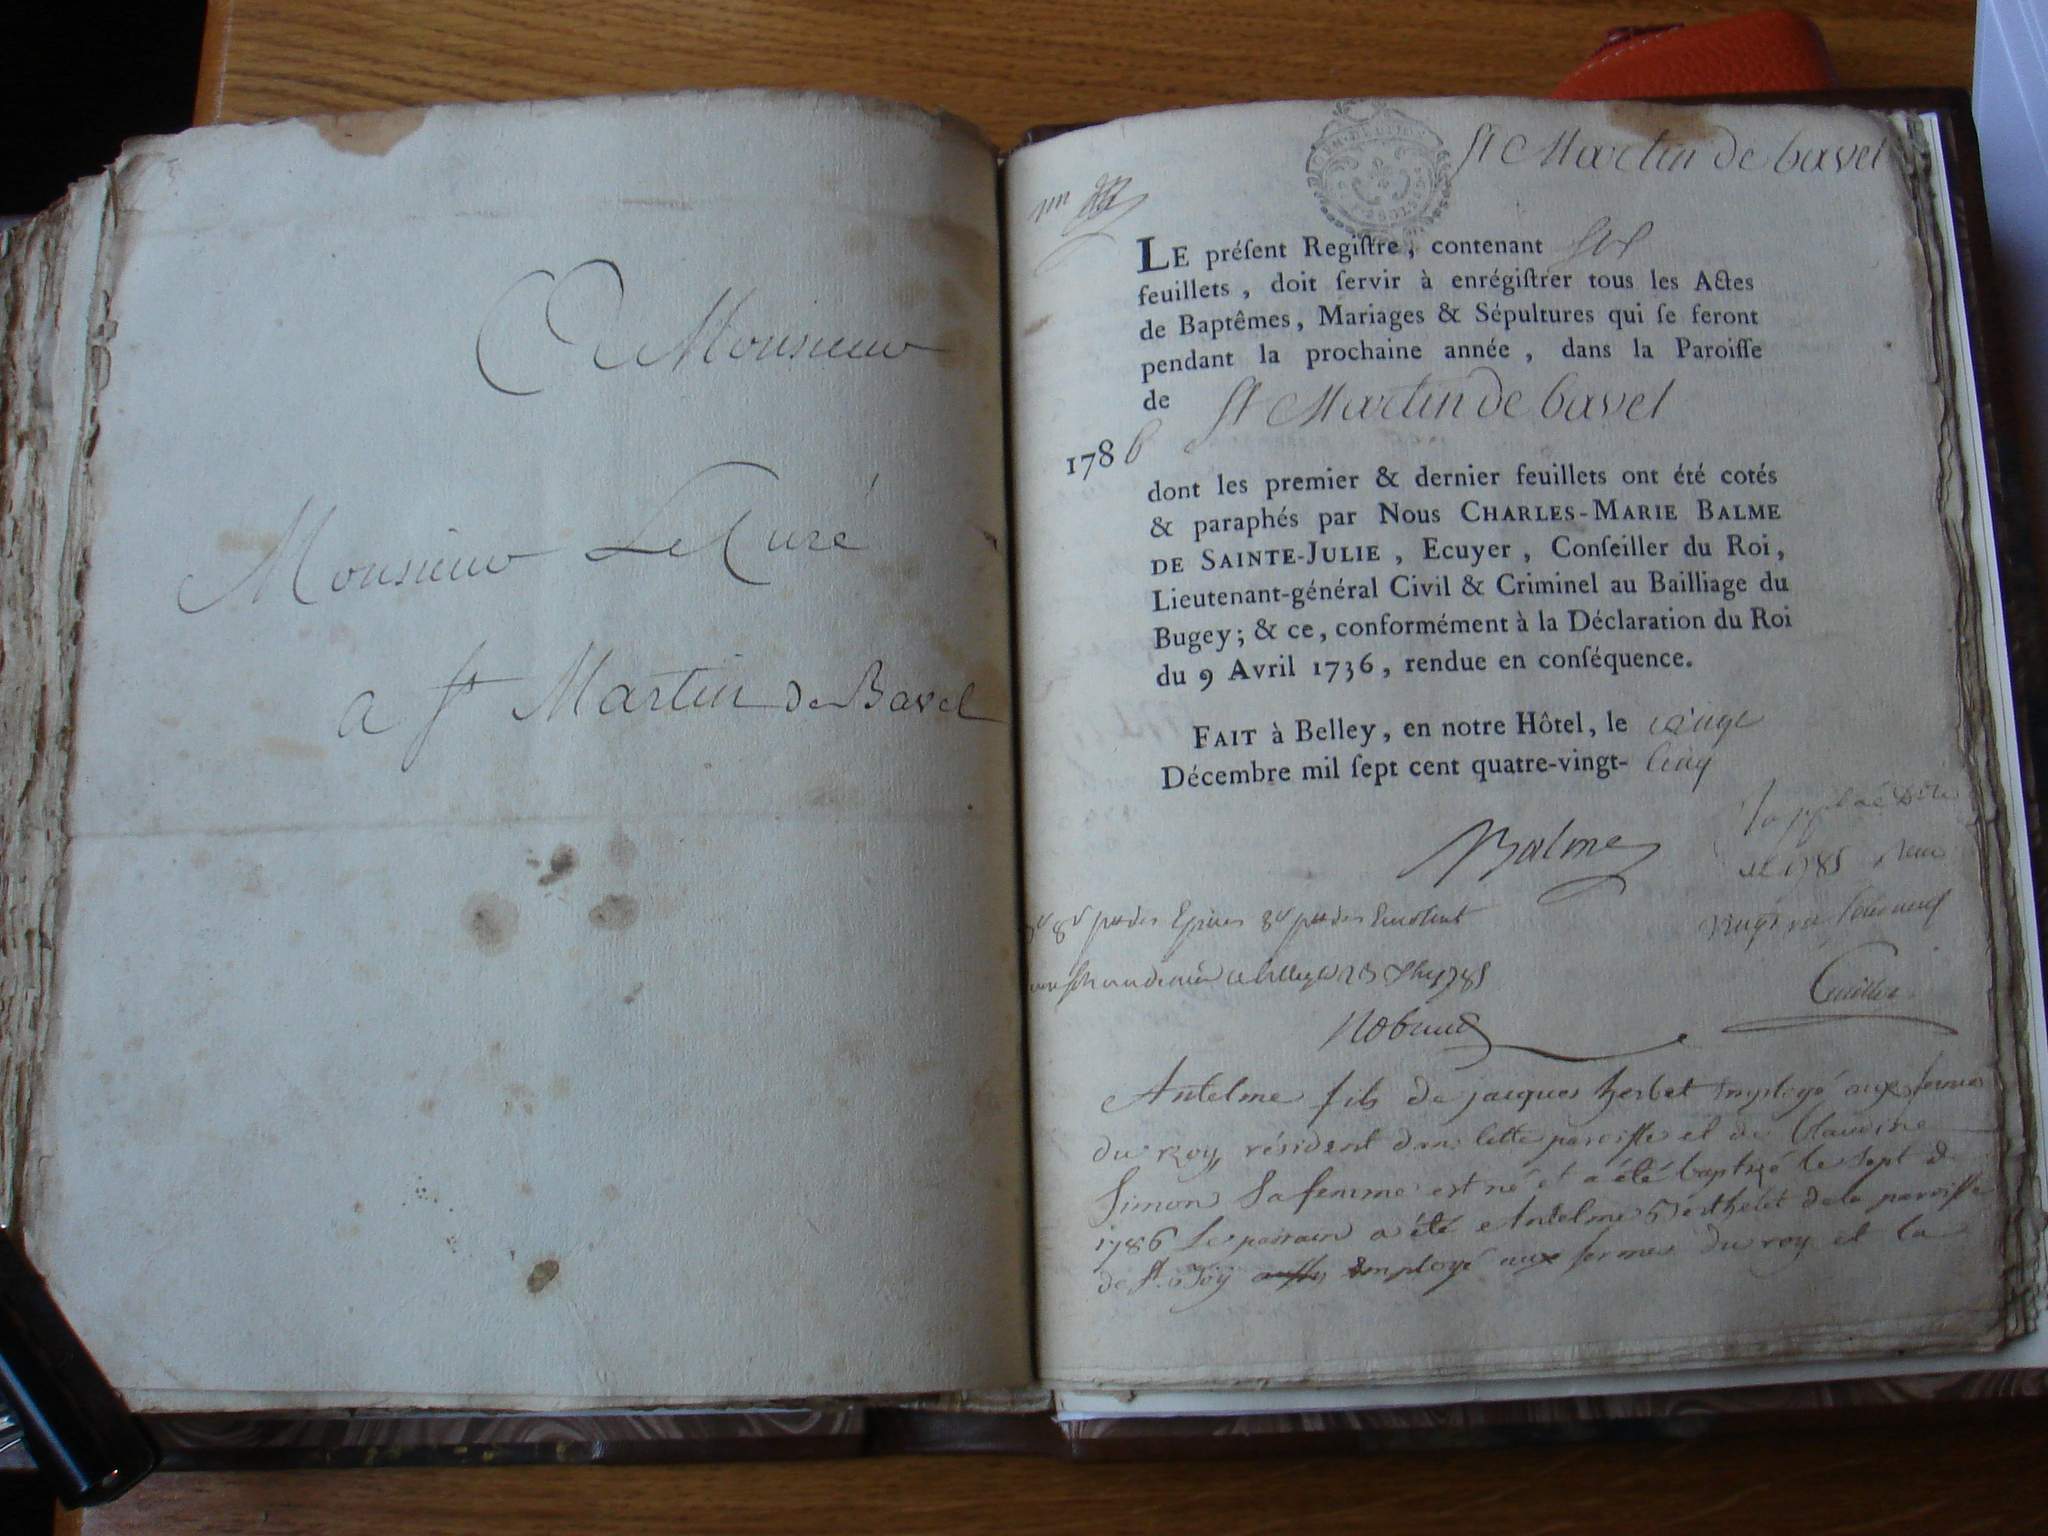 A Monsieur
Monsieur Le Curé
a St Martin de Bavel
St Martin de bavel
LE préſent Regiſtre, contenant six
feuillets, doit ſervir à enrégiſtrer tous les Actes
de Baptêmes, Mariages & Sépultures qui ſe feront
pendant la prochaine année, dans la Paroiſſe
de St Martin de bavel
1786
dont les premier & dernier feuillets ont été cotés
& paraphés par Nous CHARLES-MARIE BALME
DE SAINTE-JULIE, Ecuyer, Conſeiller du Roi,
Lieutenant-général Civil & Criminel au Bailliage du
Bugey; & ce, conformément à la Déclaration du Roi
du 9 Avril 1736, rendue en conſéquence.
FAIT à Belley, en notre Hôtel, le vingt
Décembre mil ſept cent quatre-vingt-cinq
Balme
1785
Antelme fils de jacques herbet employé aux fermes
du roy résident dans cette paroisse et de Claudine
Simon sa femme est né et a été baptizé le sept
1786 Le parrain a été Antelme de la paroisse
de St employé aux fermes du roy et la